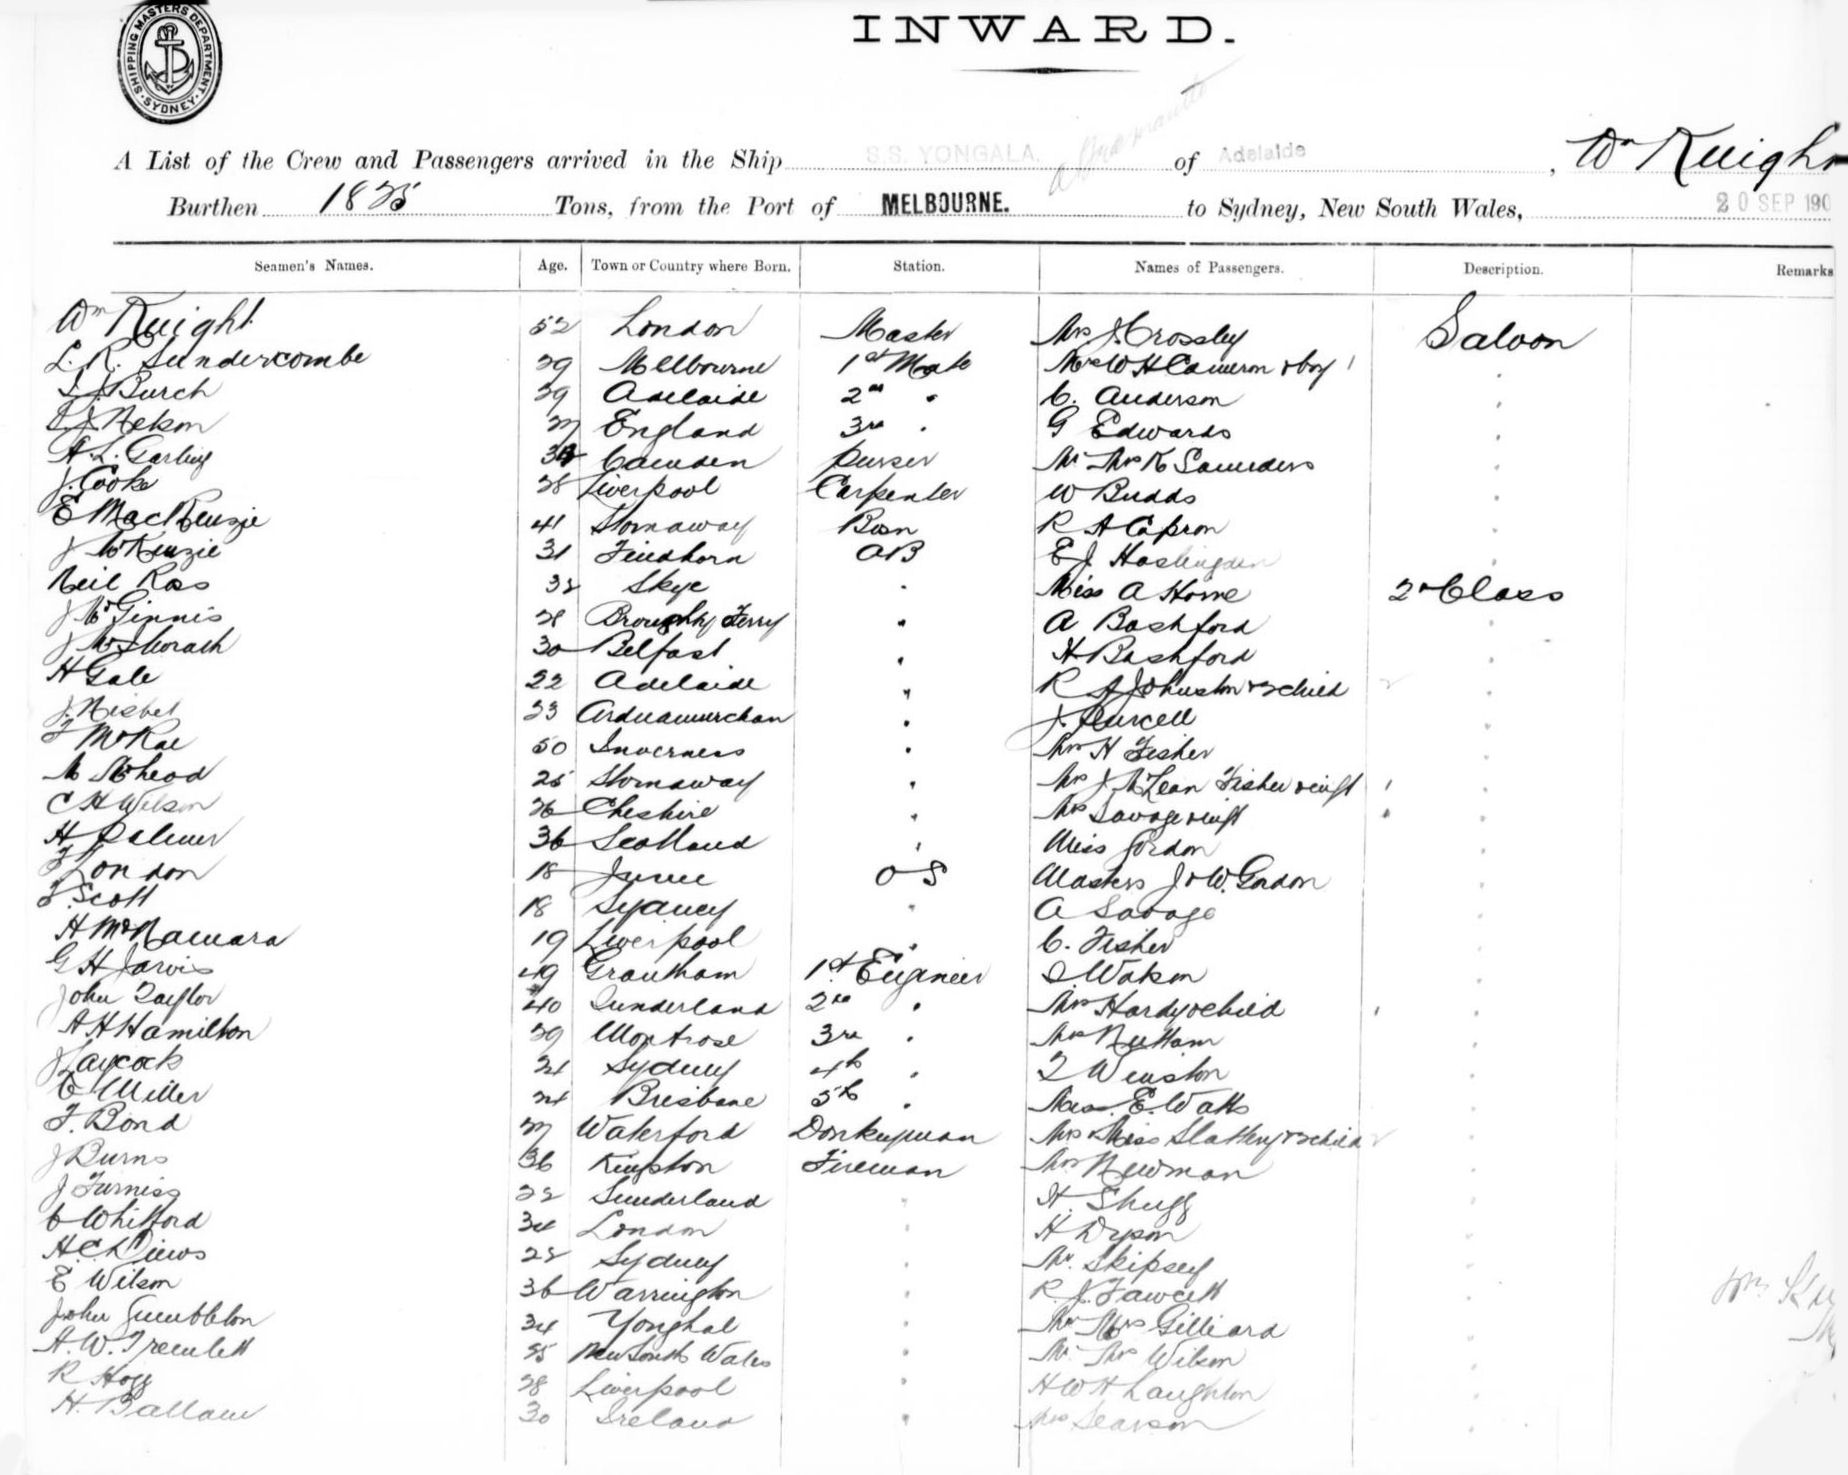 SHIPPING MASTERS DEPARTMENT
SYDNEY
INWARD.
A List of the Crew and Passengers arrived in the Ship S.S. YONGALA. of Adelaide, Wm Knight
Burthen 1825 Tons, from the Port of MELBOURNE. to Sydney, New South Wales, 20 SEP 190
Seamen's Names. Age. Town or Country where Born. Station. Names of Passengers. Description. Remarks
Wm Knight 52 London Master Mrs J. Crossley Saloon
L. R. Sundercombe 29 Melbourne 1st Mate Mrs W H Cameron & boy 1
Burch 39 Adelaide 2nd " C. Anderson
England 3rd " G Edwards
A. L. Carling Camden Purser Mr Mrs K Saunders
J. Cooke 28 Liverpool Carpenter W Budds
E MacKenzie 41 Stornaway Bosn R A Capron
J McKenzie 31 Findhorn AB E J Haslingden
Neil Ross 32 Skye " Miss A Horne 2nd Class
J McGinnis 28 Broughty Ferry " A Bashford
J 30 Belfast " H Bashford
H Gale 22 Adelaide " R A Johnston & 2 child
J. Nisbet 23 Ardnamurchan " J. Purcell
McRae 50 Inverness " Mrs H Fisher
M McLeod 25 Stornaway " Mrs J McLean Fisher & inft 1
C H Wilson 26 Cheshire " Mrs Savage & inft
H Palmer 36 Scotland " Miss Gordon
London 18 Junee O S Masters J & W. Gordon
F. Scott 18 Sydney " A Savage
H McNamara 19 Liverpool " C. Fisher
G H Jarvis 49 Grantham 1st Engineer Watson
John Taylor 40 Sunderland 2nd " Mrs Hardy & child 1
A H Hamilton 29 Montrose 3rd " Mrs
J Laycock 21 Sydney 4th " Winston
E Miller 24 Brisbane 5th " Miss. E. Watts
F. Bond 27 Waterford Donkeyman Mrs & Miss Slattery & 2 child
J Burns 36 Kingston Fireman Mrs Newman
J Furniss 22 Sunderland " H. Shugg
C Whitford 34 London " H Dyson
H. C. 28 Sydney " Mr. Skipsey
E Wilson 36 Warrington " R. J. Fawcett
John Gumbleton 34 Youghal " Mr Mrs Gilliard
A. W. Tremlett New South Wales " Mr Mrs Wilson
R Hogg 28 Liverpool " H W H Laughton
H. Ballam 30 Ireland " Mrs Searson